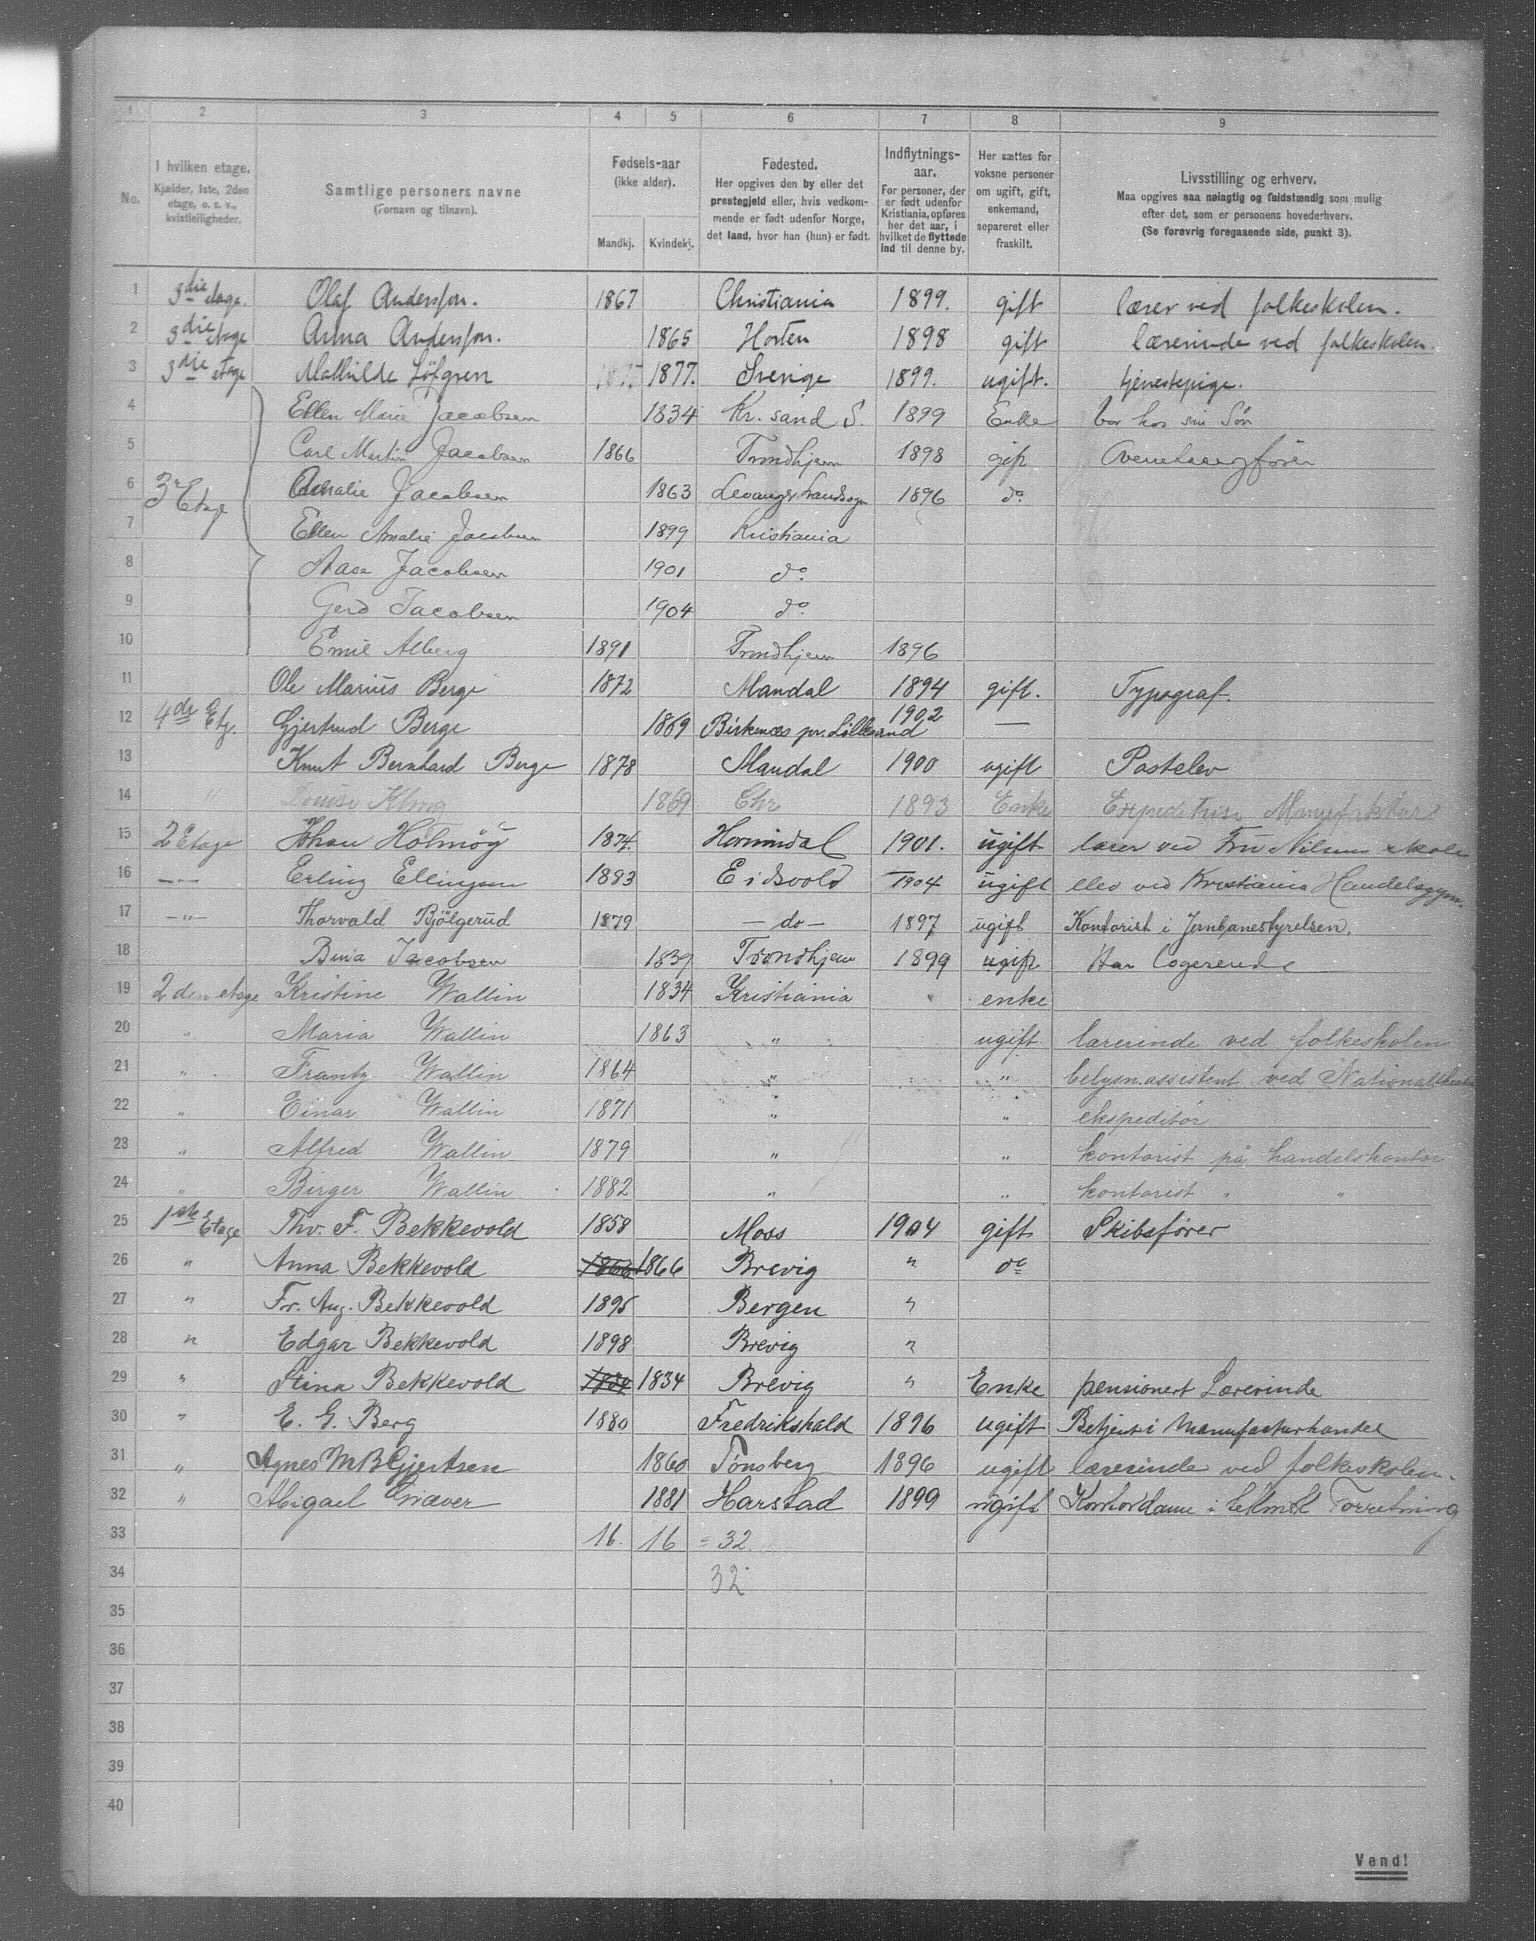 1 2 3 4 5 6 7 8 9
No.
I hvilken etage.
Kjælder, 1ste, 2den
etage, o. s. v.,
kvistleiligheder.
Samtlige personers navne
(Fornavn og tilnavn).
Fødsels-aar
(ikke alder).
Mandkj. Kvindekj.
Fødested.
Her opgives den by eller det
prestegjeld eller, hvis vedkom-
mende er født udenfor Norge,
det land, hvor han (hun) er født.
Indflytnings-
aar.
For personer, der
er født udenfor
Kristiania, opføres
her det aar, i
hvilket de flyttede
ind til denne by.
Her sættes for
voksne personer
om ugift, gift,
enkemand,
separeret eller
fraskilt.
Livsstilling og erhverv.
Maa opgives saa nøiagtig og fuldstændig som mulig
efter det, som er personens hovederhverv.
(Se forøvrig foregaaende side, punkt 3).
1 3die etage. Olaf Andersson. 1867 Christiania 1899. gift lærer ved folkeskolen.
2 3die etage Anna Andersson. 1865 Horten 1898 gift lærerinde ved folkeskolen.
3 3die etage Mathilde Löfgren 1877. Sverige 1899. ugift. tjenestepige.
4 Ellen Marie Jacobsen 1834 Kr. sand S. 1899 Enke bor hos sin Søn
5 Carl Martin Jacobsen 1866 Trondhjem 1898 gift
6 3 Etage Amalie Jacobsen 1863 Levanger Landsogn 1896 do
7 Ellen Amalie Jacobsen 1899 Kristiania
8 Aase Jacobsen 1901 do.
9 Gerd Jacobsen 1904 do.
10 Emil Alberg 1891 Trondhjem 1896
11 Ole Marius Berge 1872 Mandal 1894 gift. Typograf.
12 4de Etg. Gjertrud Berge 1869 Birkenæs pr. Lillesand 1902 —
13 Knut Bernhard Berge 1878 Mandal 1900 ugift Postelev
14 " Louise Kling 1869 Chr 1893 Enke Expeditrise
15 2 Etage Johan Holmøy 1874. Hornindal 1901. ugift lærer ved Fru Nilsens skole
16 —"— Erling Ellingsen 1883 Eidsvold 1904 ugift elev ved Kristiania Handelsgym.
17 —"— Thorvald Bjölgerud 1879 — do — 1897 ugift Kontorist i Jernbanestyrelsen.
18 Bina Jacobsen 1839 Trondhjem 1899 ugift Har Logerende
19 2den etage Kristine Wallin 1834 Kristiania enke
20 " Maria Wallin 1863 " ugift lærerinde ved folkeskolen
21 " Frantz Wallin 1864 " " belysn.assistent ved Nationaltheatret
22 " Einar Wallin 1871 " " ekspeditør
23 " Alfred Wallin 1879 " " kontorist på handelskontor
24 " Birger Wallin 1882 " " kontorist " "
25 1ste Etage Thv. F. Bekkevold 1858 Moss 1904 gift Skibsfører
26 " Anna Bekkevold 1866 1866 Brevig " do
27 " Fr. Aug. Bekkevold 1895 Bergen "
28 " Edgar Bekkevold 1898 Brevig "
29 " Stina Bekkevold 1834 1834 Brevig " Enke pensionert Lærerinde
30 " E. G. Berg 1880 Fredrikshald 1896 ugift Betjent i Manufacturhandel
31 " Agnes M B Gjertsen 1860 Tønsberg 1896 ugift lærerinde ved folkeskolen.
32 " Abigael Græver 1881 Harstad 1899 ugift Kontordame i Forretning
33 16. 16 = 32.
34 32
35
36
37
38
39
40
Vend!